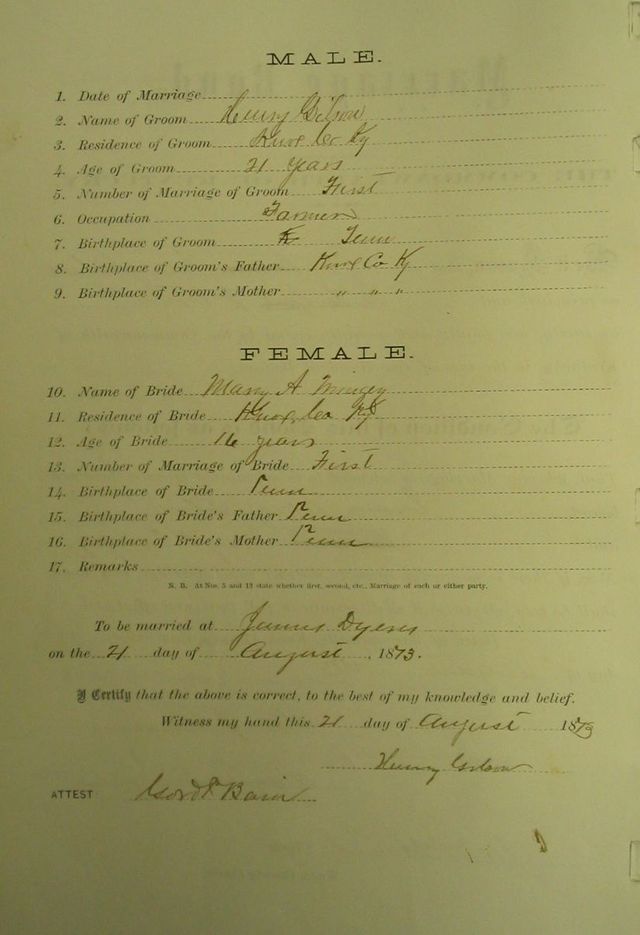 MALE.
1. Date of Marriage
2. Name of Groom Henry Gibson
3. Residence of Groom Knox Co Ky
4. Age of Groom 21 years
5. Number of Marriage of Groom First
6. Occupation Farmer
7. Birthplace of Groom Tenn
8. Birthplace of Groom's Father Knox Co Ky
9. Birthplace of Groom's Mother " " "
FEMALE.
10. Name of Bride Mary A
11. Residence of Bride Knox Co Ky
12. Age of Bride 16 years
13. Number of Marriage of Bride First
14. Birthplace of Bride Tenn
15. Birthplace of Bride's Father Tenn
16. Birthplace of Bride's Mother Tenn
17. Remarks
N. B. At Nos. 5 and 13 state whether first, second, etc., Marriage of each or either party.
To be married at James Dyers
on the 21 day of August, 1873.
I Certify that the above is correct, to the best of my knowledge and belief.
Witness my hand this 21 day of August 1873
Henry Gibson
ATTEST Bain